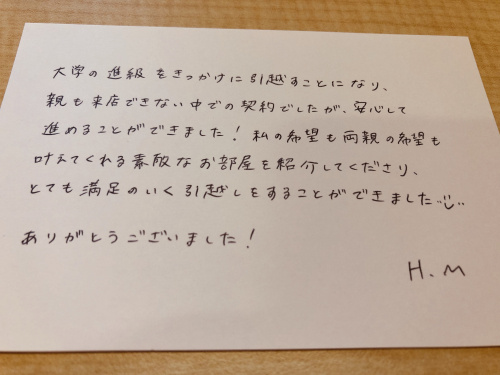 大学の進級をきっかけに引越すことになり、
親も来店できない中での契約でしたが、安心して
進めることができました！私の希望も両親の希望も
叶えてくれる素敵なお部屋を紹介してくださり、
とても満足のいく引越しをすることができました
ありがとうございました！
H.M